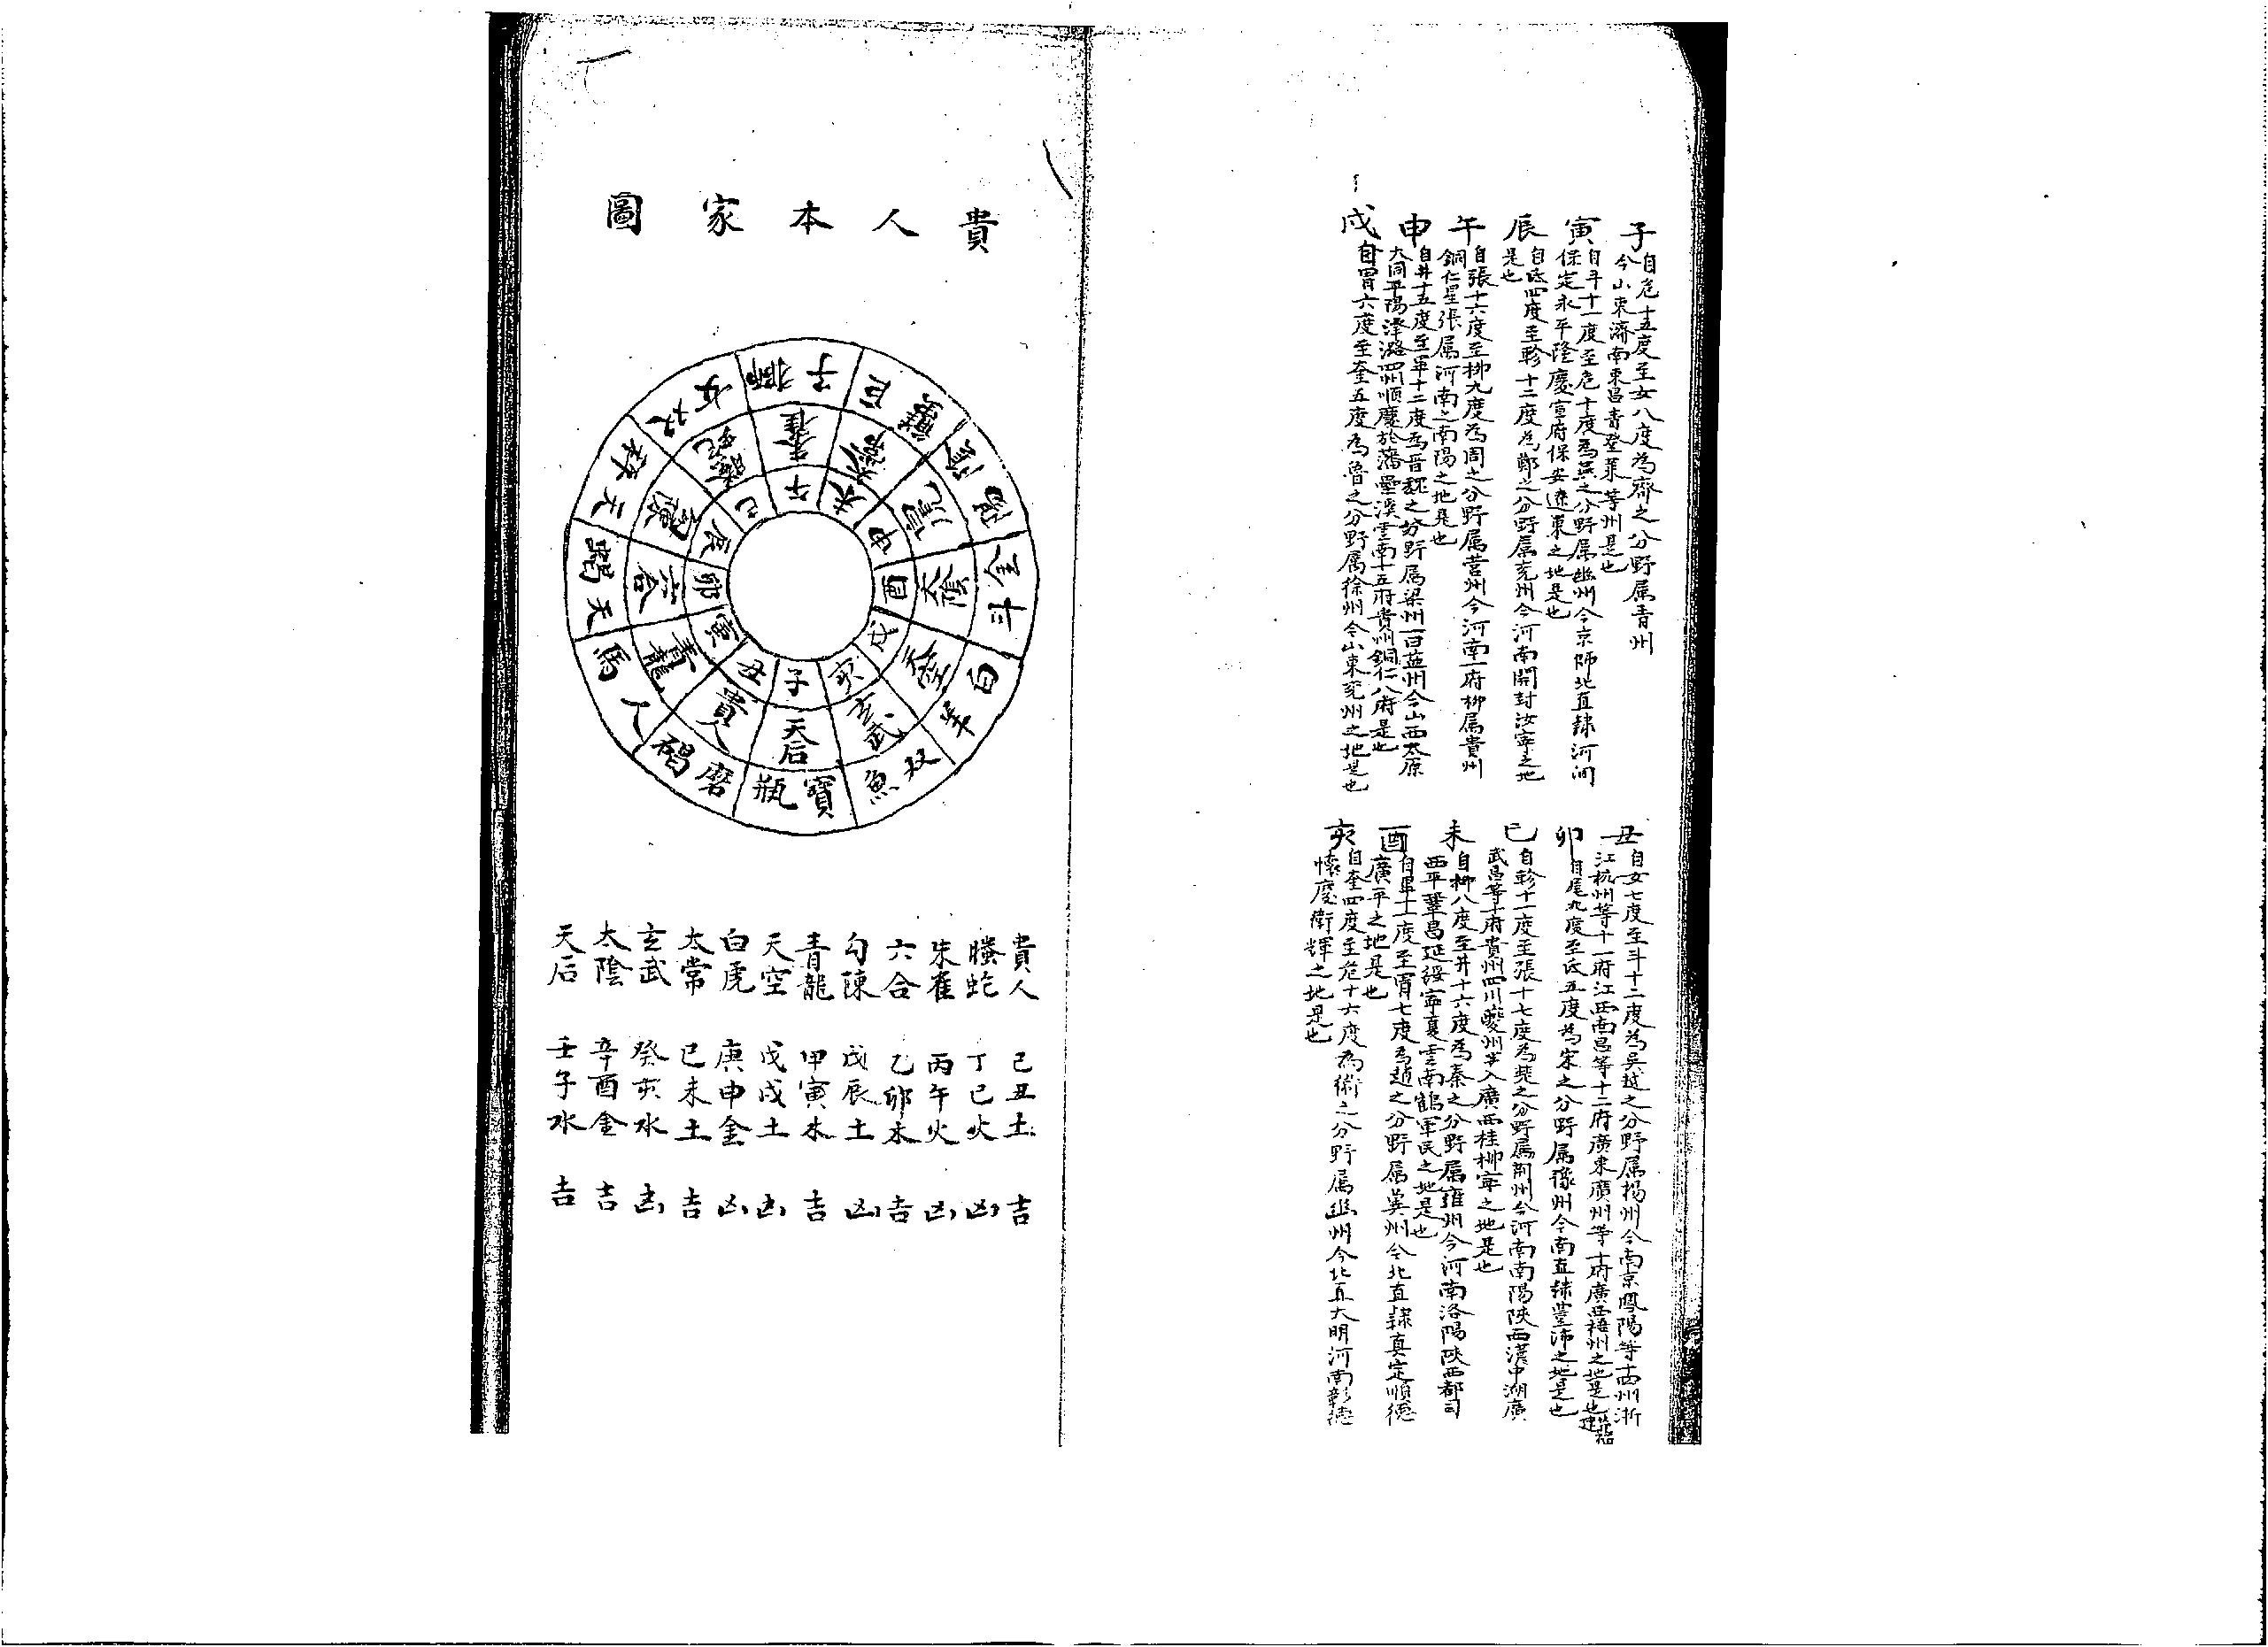 子
自危十五度至女八度為齊之分野属青州
今山東濟南東昌青登萊等州是也
寅
自斗十一度至危十度為燕之分野属幽州今京师北直隸河间
保定永平隆慶宣府保安遼東之地是也
辰
自氐四度至軫十二度為鄭之分野属兖州今河南開封汝寧之地
是也
午
自張十六度至柳九度為周之分野属营州今河南一府柳属貴州
銅仁星張属河南之南陽之地是也
申
自井十五度至畢十二度為晋魏之分野属梁州一曰益州今山西太原
大同平陽澤潞四州順慶於藩壘溪雲南十五府貴州銅仁八府是也
戌
自胃六度至奎五度為魯之分野属徐州今山東兖州之地是也
丑
自女七度至斗十二度為吴越之分野属揚州今南京鳳陽等十四州浙
江杭州等十一府江西南昌等十二府廣東廣州等十府廣西梧州之地是也
卯
自尾九度至氐五度為宋之分野属豫州今南直隸豐沛之地是也
巳
自軫十一度至張十七度為楚之分野属荆州今河南南陽陕西漢中湖廣
武昌等十府貴州四川夔州半入廣西桂柳寧之地是也
未
自柳八度至井十六度為秦之分野属雍州今河南洛陽陕西都司
西平鞏昌延綏寧夏雲南鶴军民之地是也
酉
自畢十一度至胃七度為趙之分野属冀州今北直隸真定順德
廣平之地是也
亥
自奎四度至危十六度為衛之分野属幽州今北直大明河南彰德
懷慶衛輝之地是也
貴人本家圖
子 丑 寅 卯 辰 巳 午 未 申 酉 戌 亥
天后 貴人 青龍 六合 勾陳 螣蛇 朱雀 太常 白虎 太陰 天空 玄武
寶瓶 磨碣 人馬 天蝎 天秤 双女 獅子 巨蟹 陰陽 金斗 白羊 双魚
貴人 己丑土 吉
螣蛇 丁巳火 凶
朱雀 丙午火 凶
六合 乙卯木 吉
勾陳 戊辰土 凶
青龍 甲寅木 吉
天空 戊戌土 凶
白虎 庚申金 凶
太常 己未土 吉
玄武 癸亥水 凶
太陰 辛酉金 吉
天后 壬子水 吉